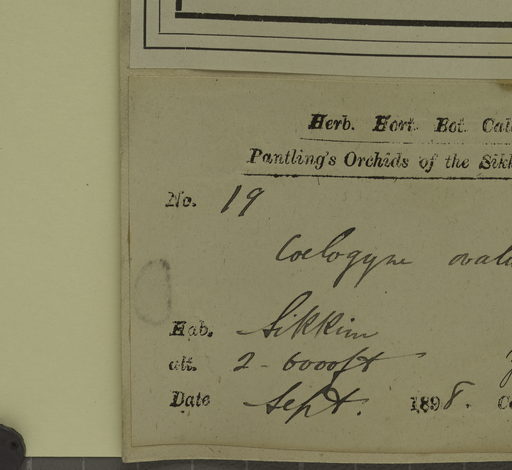 Herb. Hort. Bot. Cal
Pantling's Orchids of the Sikk
No. 19
Coelogyne oval
Hab. Sikkim
alt. 2-6000ft
Date Sept. 1898. C